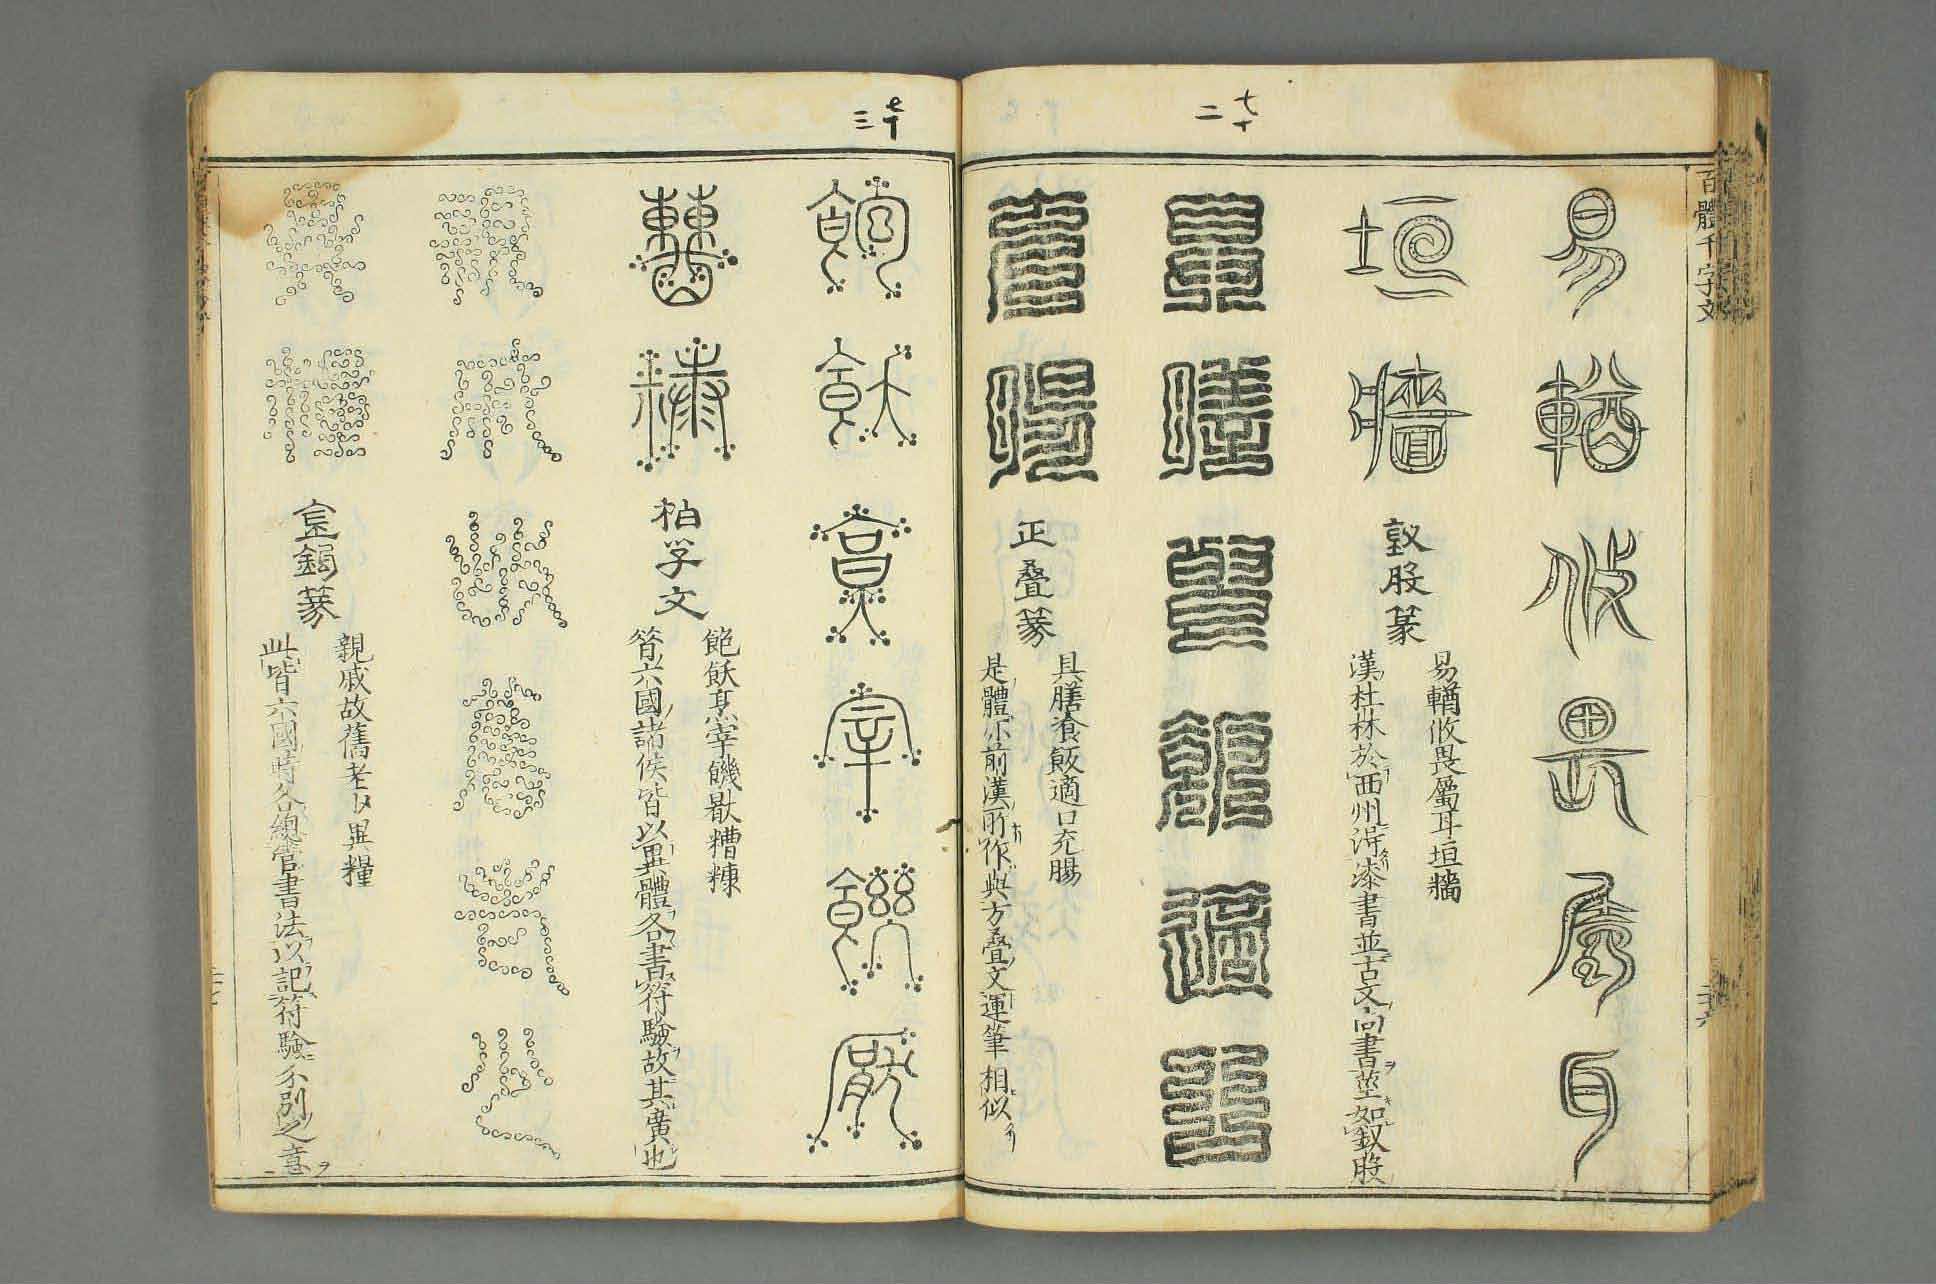 七十二
百體千字文
易輶攸畏屬耳
垣牆
釵股篆
易輶攸畏屬耳垣牆
漢杜林於西州得漆書並古文尚書莖如釵股
具膳飡飯適口
充腸
正疊篆
具膳飡飯適口充腸
是體尓前漢所作與方疊文運筆相似
七十三
飽飫烹宰饑厭
糟糠
柏孚文
飽飫烹宰饑厭糟糠
六國諸侯皆以異體各書符驗故其廣也
親戚故舊老少
異糧
金錯篆
親戚故舊老少異糧
此皆六國時各總管書法以記符驗分別之意